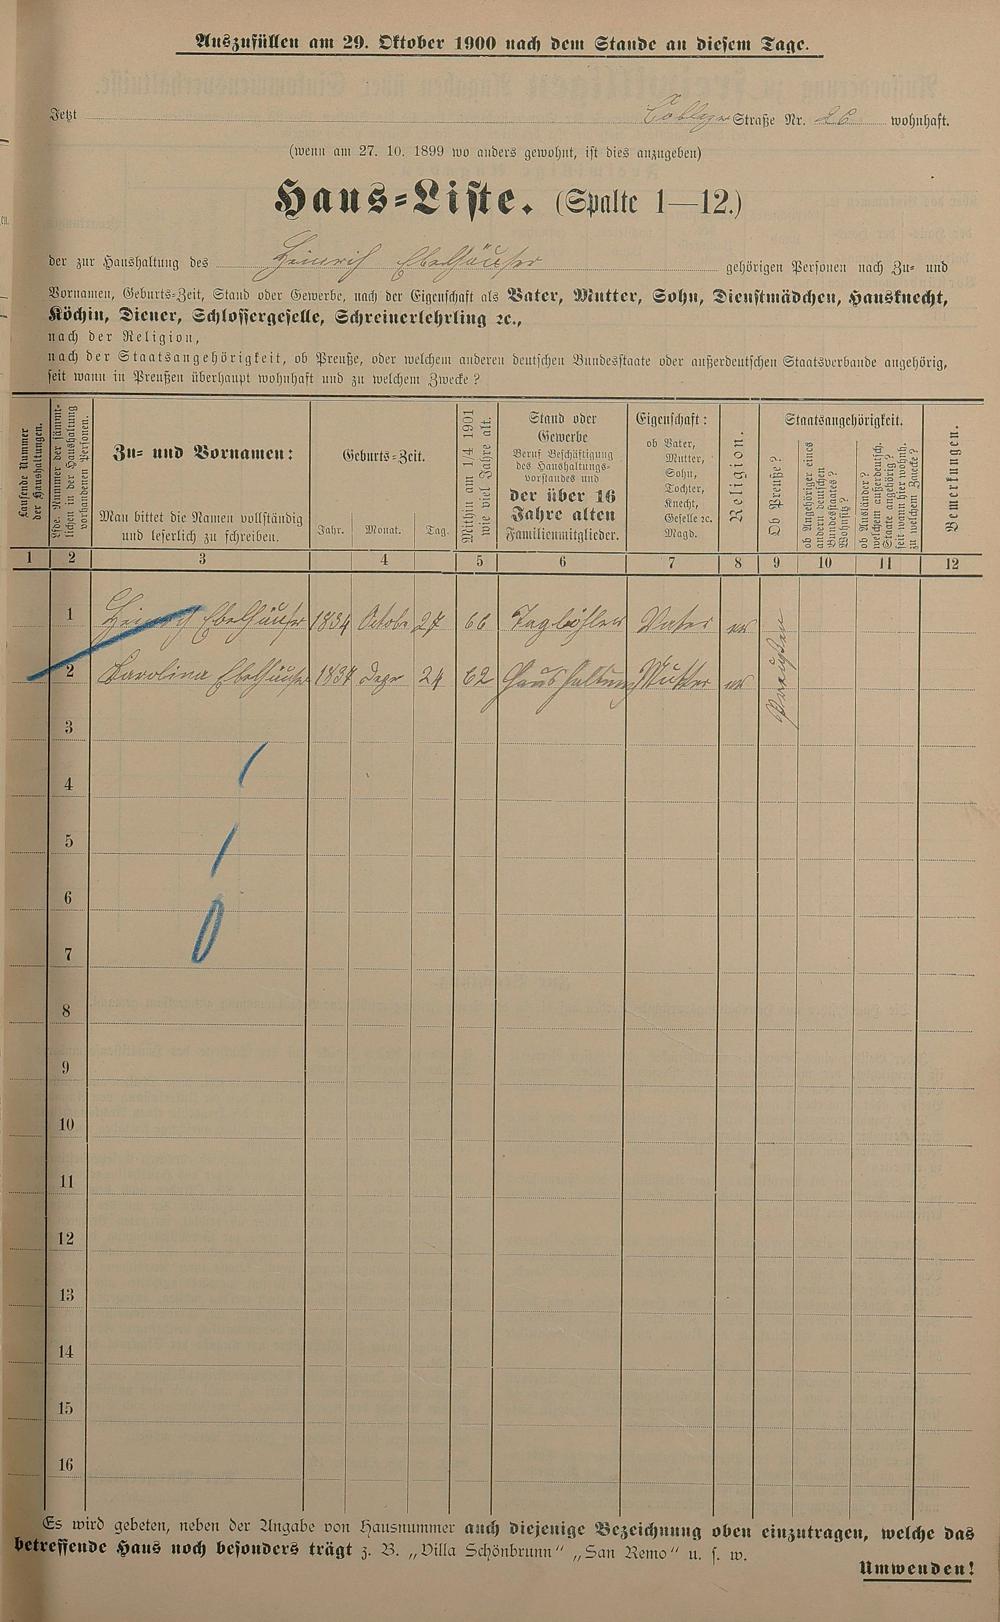 Auszufüllen am 29. Oktober 1900 nach dem Stande an diesem Tage.
Jetzt Straße Nr. 26 wohnhaft.
(wenn am 27. 10. 1899 wo anders gewohnt, ist dies anzugeben)
Haus-Liste. (Spalte 1—12.)
der zur Haushaltung des Heinrich Ebelhäuser gehörigen Personen nach Zu- und
Vornamen, Geburts-Zeit, Stand oder Gewerbe, nach der Eigenschaft als Vater, Mutter, Sohn, Dienstmädchen, Hausknecht,
Köchin, Diener, Schlossergeselle, Schreinerlehrling ꝛc.,
nach der Religion,
nach der Staatsangehörigkeit, ob Preuße, oder welchem anderen deutschen Bundesstaate oder außerdeutschen Staatsverbande angehörig,
seit wann in Preußen überhaupt wohnhaft und zu welchem Zwecke?
Laufende Nummer
der Haushaltungen.
Lfde. Nummer der sämmt-
lichen in der Haushaltung
vorhandenen Personen.
Zu- und Vornamen:
Man bittet die Namen vollständig
und leserlich zu schreiben.
Geburts-Zeit.
Jahr. Monat. Tag.
Mithin am 1/4 1901
wie viel Jahre alt.
Stand oder
Gewerbe
Beruf Beschäftigung
des Haushaltungs-
vorstandes und
der über 16
Jahre alten
Familienmitglieder.
Eigenschaft:
ob Vater,
Mutter,
Sohn,
Tochter,
Knecht,
Geselle ꝛc.
Magd.
Religion.
Staatsangehörigkeit.
Ob Preuße?
ob Angehöriger eines
andern deutschen
Bundesstaates?
Wohnsitz?
ob Ausländer?
welchem außerdeutsch.
Staate angehörig?
seit wann hier wohnh.
zu welchem Zwecke?
Bemerkungen.
1 2 3 4 5 6 7 8 9 10 11 12
1 Heinrich Ebelhäuser 1834 Octobr 27 66 Taglöhner Vater ev Preußen
2 Karolina Ebelhäuser 1837 Dezr 24 62 Haushaltung Mutter ev
3
4
5
6
7
8
9
10
11
12
13
14
15
16
Es wird gebeten, neben der Angabe von Hausnummer auch diejenige Bezeichnung oben einzutragen, welche das
betreffende Haus noch besonders trägt z. B. „Villa Schönbrunn" „San Remo" u. s. w.
Umwenden!